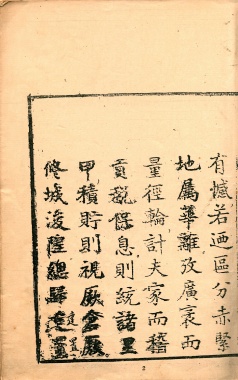 有憾若迺區分赤緊
地屬華離攷廣袤而
量徑輪計夫家而稽
貢稅保息則統諸里
甲積貯則視厥倉厫
修城浚隍總歸建置
建置
2